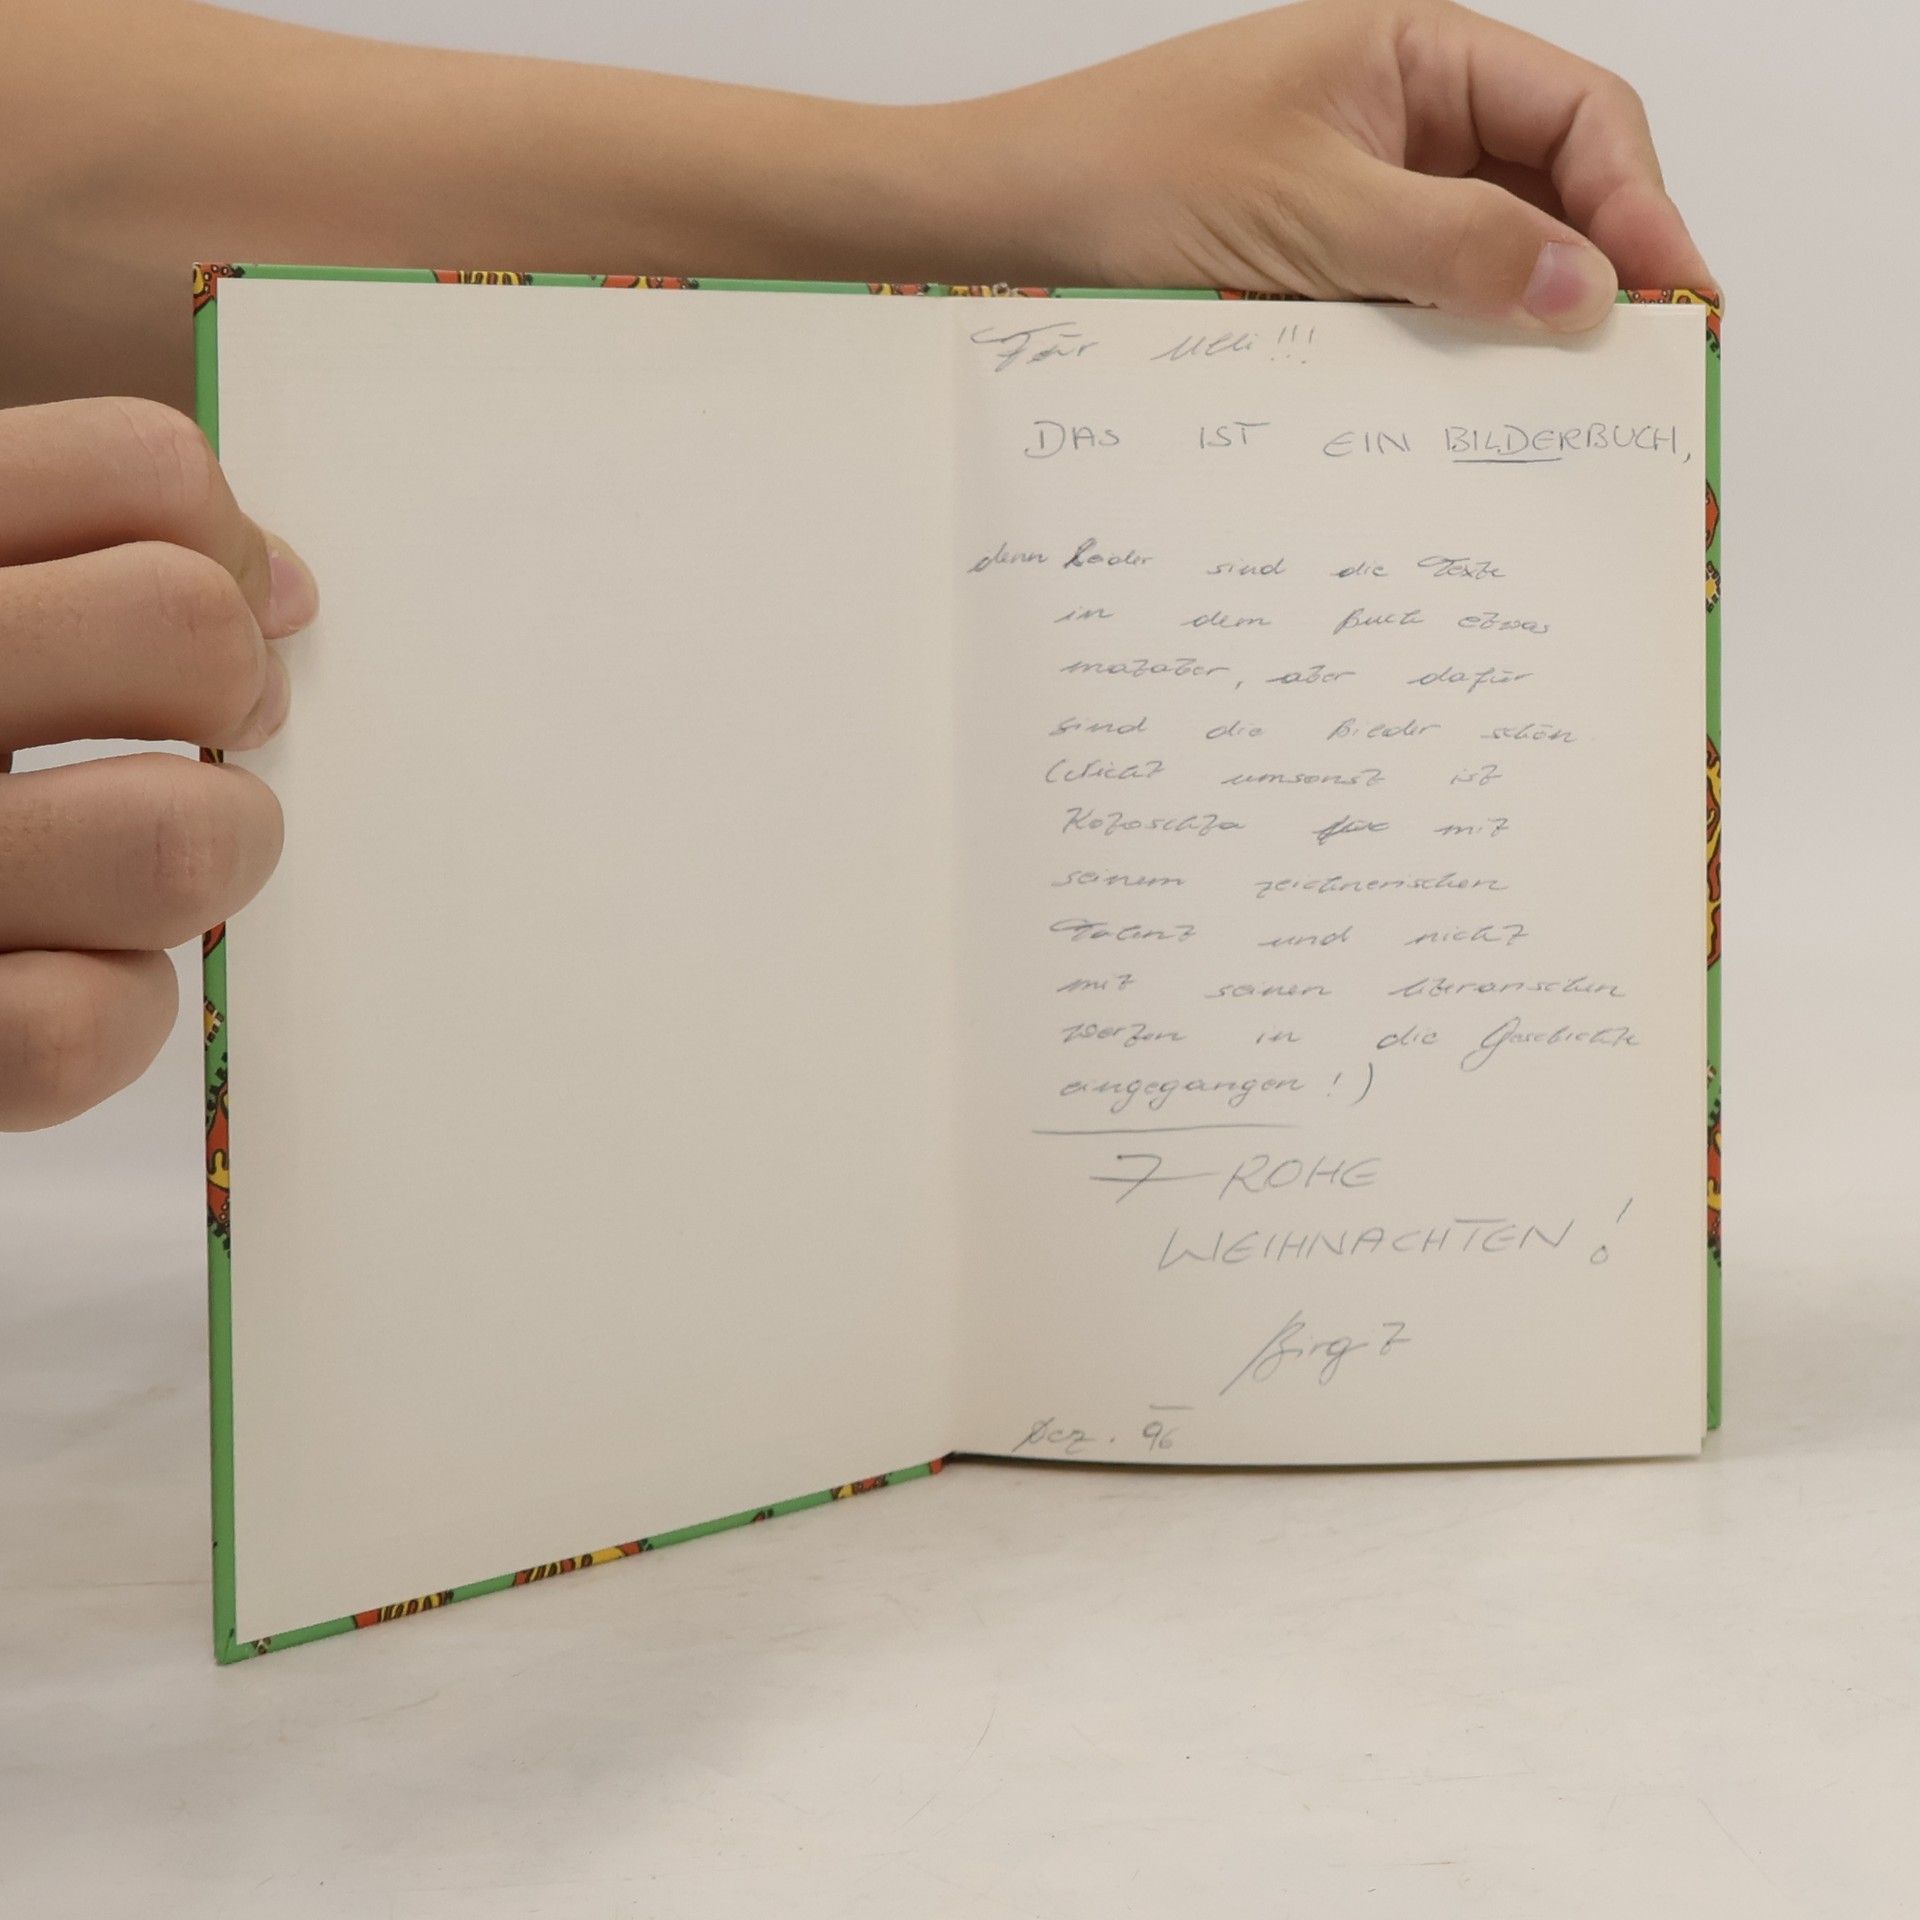 Für Ulli!!!
DAS IST EIN BILDERBUCH,
denn leider sind die Texte
in dem Buch etwas
makaber, aber dafür
sind die Bilder schön
(Nicht umsonst ist
Kokoschka mit
seinem zeichnerischen
Talent und nicht
mit seinen literarischen
Werken in die Geschichte
eingegangen!)
FROHE
WEIHNACHTEN!
Birgit
Dez. 96